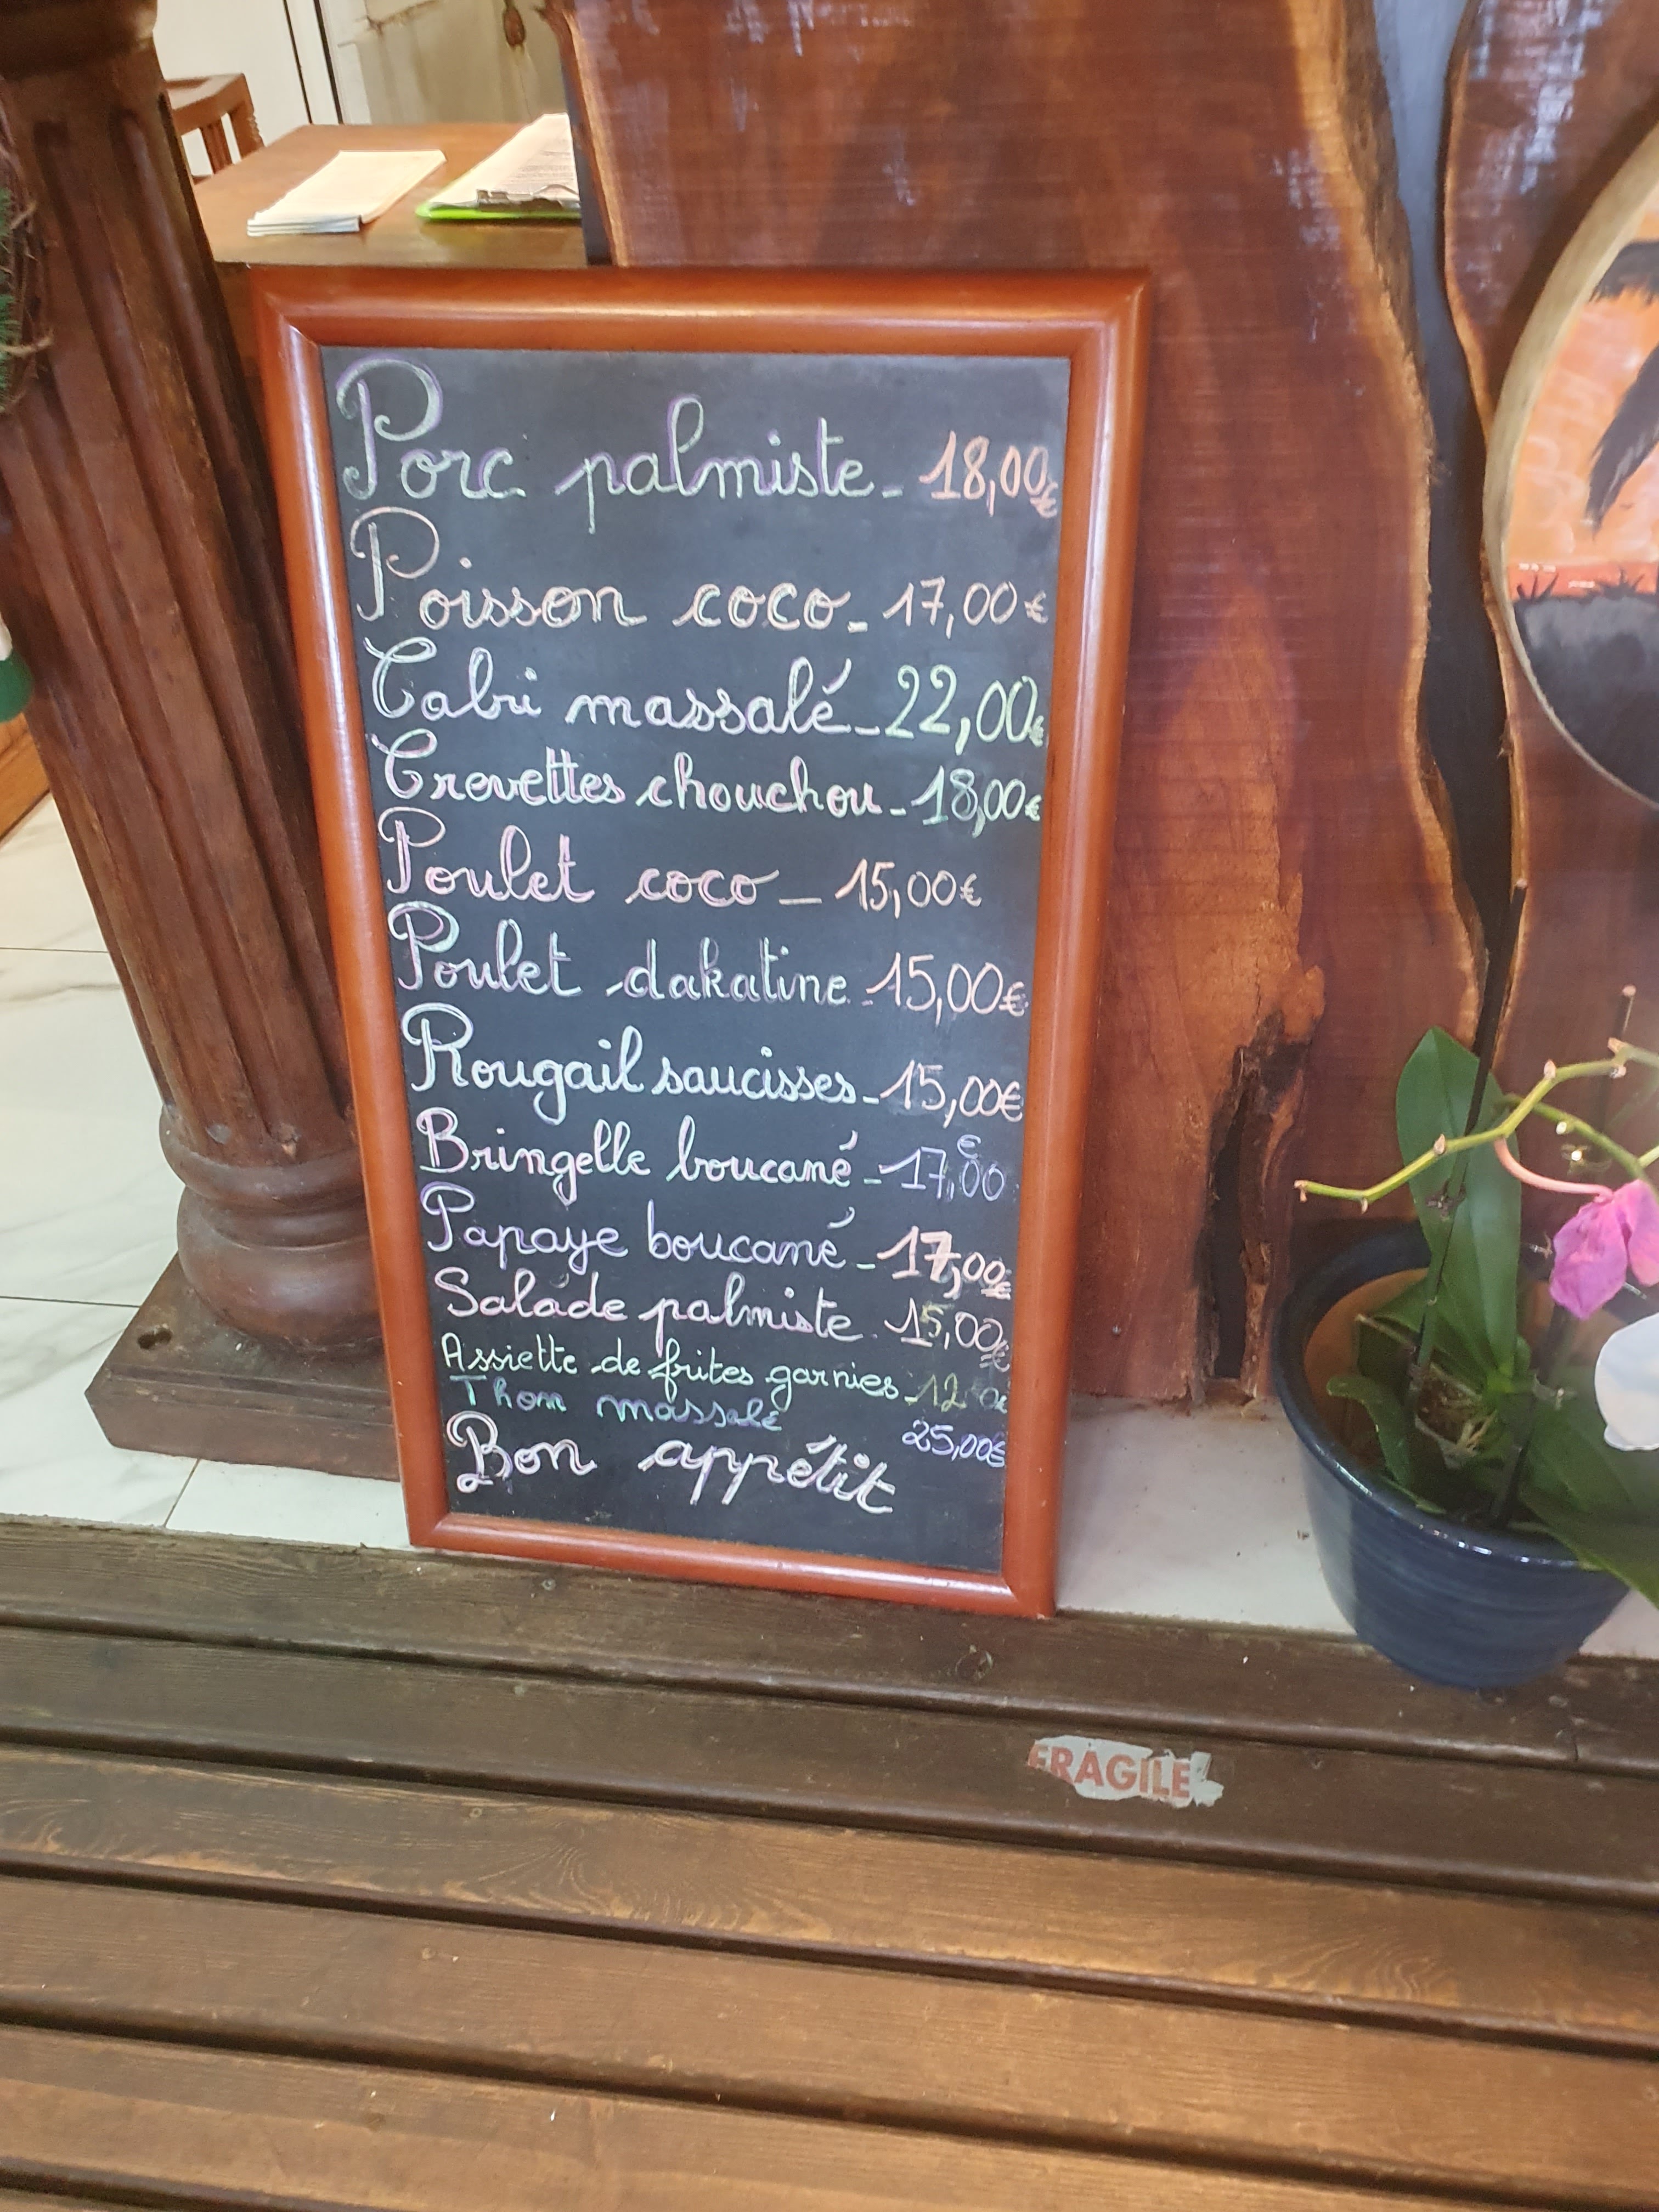 Porc palmiste - 18,00€
Poisson coco - 17,00€
Cabri massalé - 22,00€
Crevettes chouchou - 18,00€
Poulet coco - 15,00€
Poulet dakatine - 15,00€
Rougail saucisses - 15,00€
Bringelle boucané - 17,00€
Papaye boucané - 17,00€
Salade palmiste - 15,00€
Assiette de frites garnies - 12
Thon massalé 25,00€
Bon appétit
FRAGILE